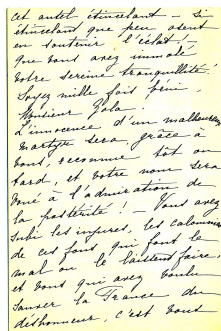 cet autel étincelant — si
étincelant que peu osent
en soutenir l'éclat —
que vous avez immolé
votre sereine tranquillité.
Soyez mille fois béni,
Monsieur Zola!
L'innocence d'un malheureux
martyr sera, grâce à
vous, reconnue tôt ou
tard, et votre nom sera
voué à l'admiration de
la postérité! — Vous avez
subi les injures, les calomnies
de ces fous qui font le
mal ou le laissent faire,
et vous qui avez voulu
sauver la France du
déshonneur, c'est vous